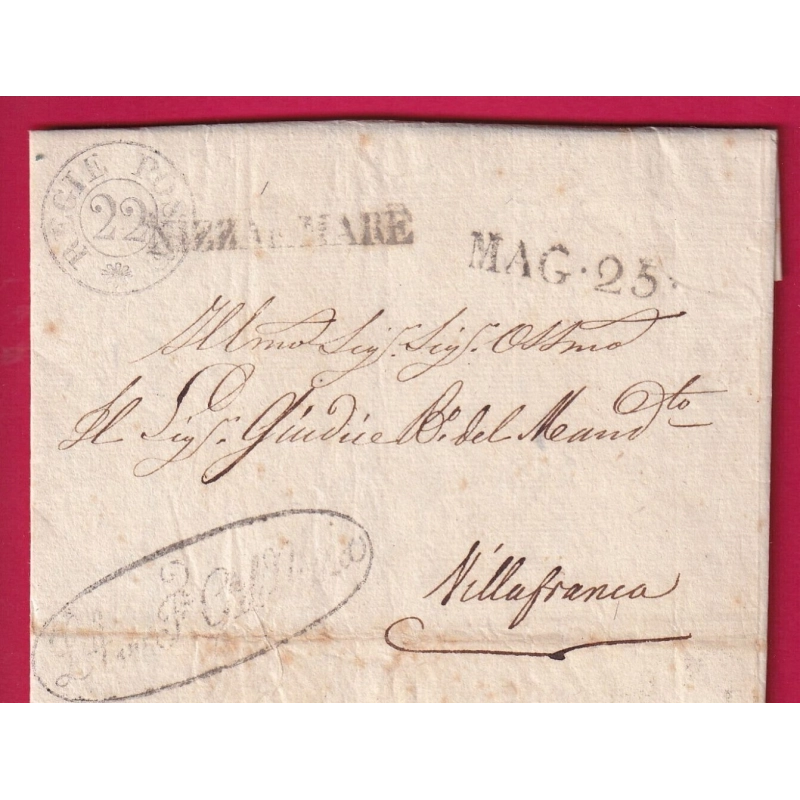 REGIE POS
22
NIZZA MARE
MAG·25·
Illmo Sigr. Sigr. Ossmo
Il Sigr. Giudice Ro. del Mandto
Villafranca